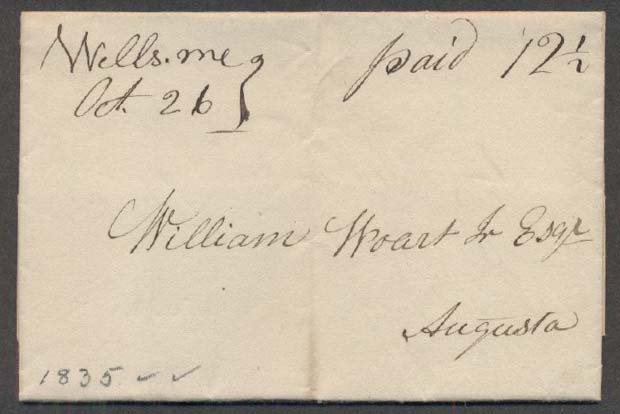 Wells. me
Oct. 26
paid 12½
William Woart Jr Esqr
Augusta
1835